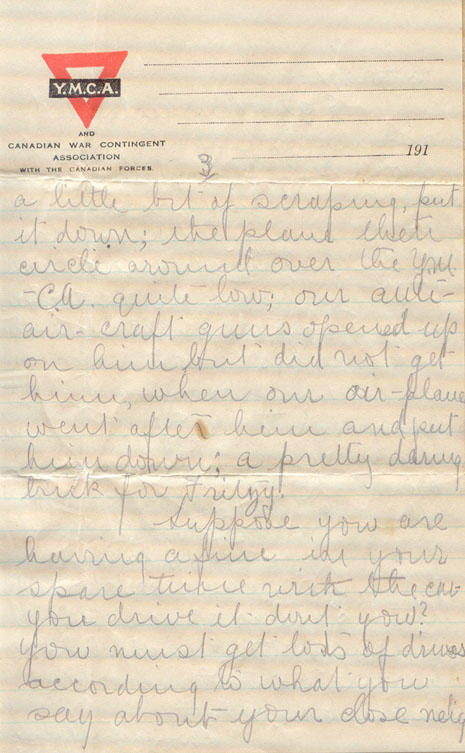 Y.M.C.A.
AND
CANADIAN WAR CONTINGENT
ASSOCIATION
WITH THE CANADIAN FORCES.
191
3
a little bit of scraping, put
it down; the plane then
circle around over the Y.M
-CA. quite low; our anti-
air-craft guns opened up
on him but did not get
him, when our air-plane
went after him and put
him down; a pretty daring
trick for Fritzy!
Suppose you are
having a fine in your
spare time with the car
you drive it dont you?
you must get lots of drives
according to what you
say about your close neig